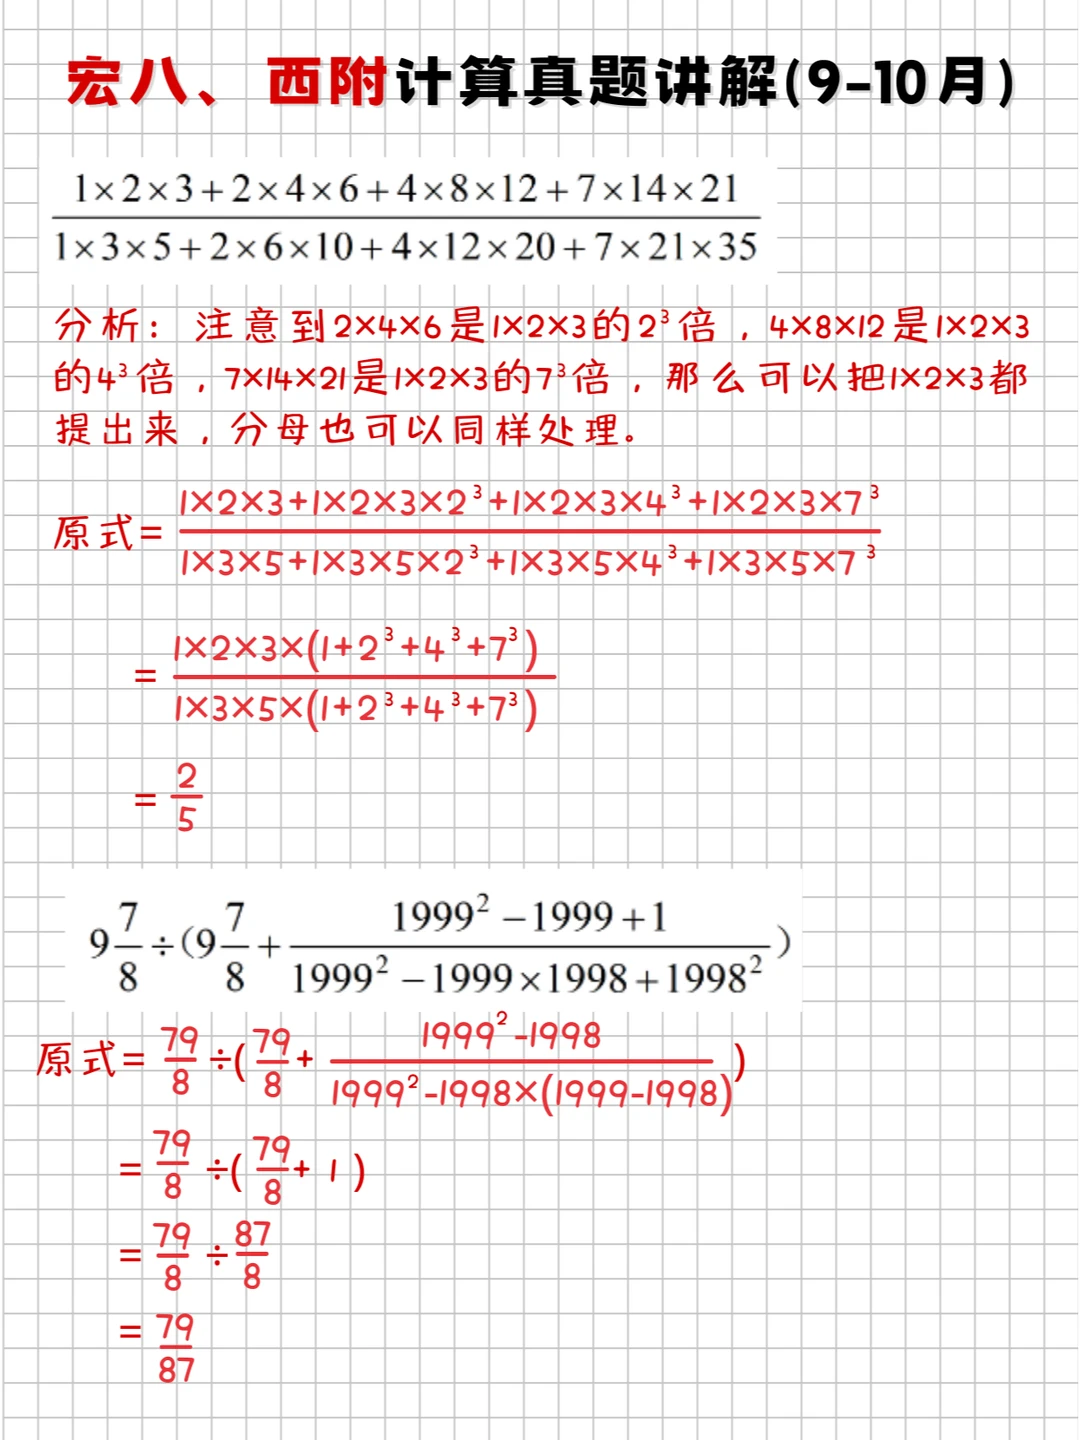 宏八、西附计算真题讲解(9-10月)
1×2×3+2×4×6+4×8×12+7×14×21
1×3×5+2×6×10+4×12×20+7×21×35
分析：注意到2×4×6是1×2×3的2³倍，4×8×12是1×2×3
的4³倍，7×14×21是1×2×3的7³倍，那么可以把1×2×3都
提出来，分母也可以同样处理。
1×2×3+1×2×3×2³+1×2×3×4³+1×2×3×7³
原式=
1×3×5+1×3×5×2³+1×3×5×4³+1×3×5×7³
1×2×3×(1+2³+4³+7³)
=
1×3×5×(1+2³+4³+7³)
2
=
5
9 7/8 ÷(9 7/8 + (1999² −1999+1)/(1999² −1999×1998+1998²))
原式= 79/8 ÷( 79/8 + (1999²-1998)/(1999²-1998×(1999-1998)) )
= 79/8 ÷( 79/8 + 1 )
= 79/8 ÷ 87/8
= 79/87